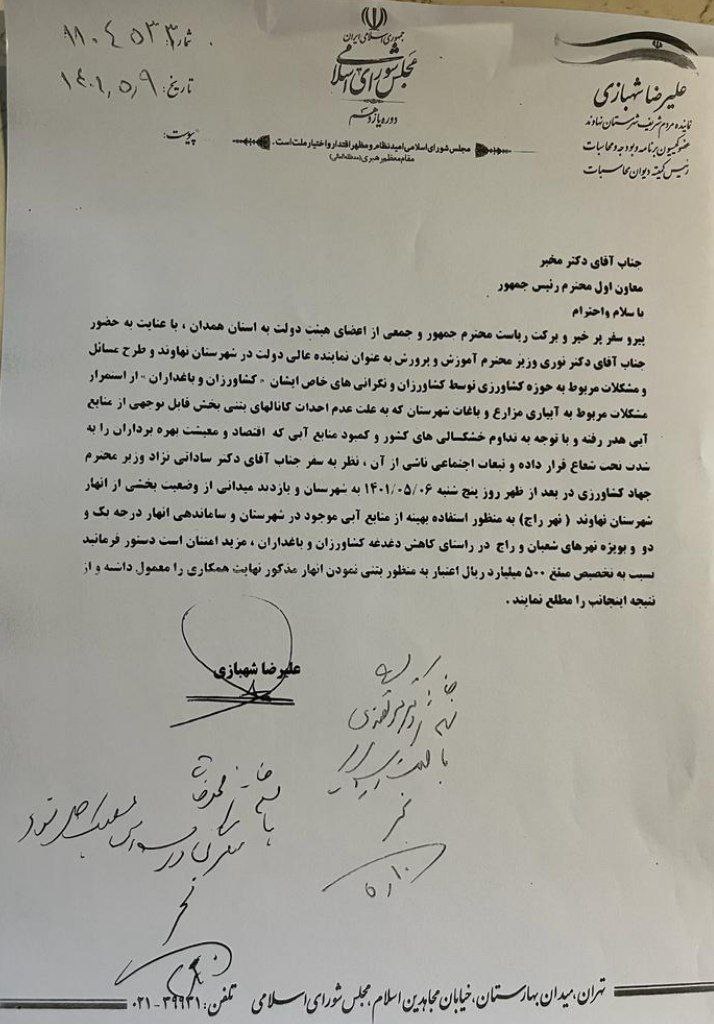 جمهوری اسلامی ایران
مجلس شورای اسلامی
دوره یازدهم
مجلس شورای اسلامی امید نظام و مظهر اقتدار و اختیار ملت است.
مقام معظم رهبری (مدظله العالی)
علیرضا شهبازی
نماینده مردم شریف شهرستان نهاوند
عضو کمیسیون برنامه و بودجه و محاسبات
رئیس کمیته دیوان محاسبات
شماره: ۱۱۰۴۵۳۳
تاریخ: ۱۴۰۱,۵,۹
پیوست:
جناب آقای دکتر مخبر
معاون اول محترم رئیس جمهور
با سلام واحترام
پیرو سفر پر خیر و برکت ریاست محترم جمهور و جمعی از اعضای هیئت دولت به استان همدان ، با عنایت به حضور
جناب آقای دکتر نوری وزیر محترم آموزش و پرورش به عنوان نماینده عالی دولت در شهرستان نهاوند و طرح مسائل
و مشکلات مربوط به حوزه کشاورزی توسط کشاورزان و نگرانی های خاص ایشان - کشاورزان و باغداران - از استمرار
مشکلات مربوط به آبیاری مزارع و باغات شهرستان که به علت عدم احداث کانالهای بتنی بخش قابل توجهی از منابع
آبی هدر رفته و با توجه به تداوم خشکسالی های کشور و کمبود منابع آبی که اقتصاد و معیشت بهره برداران را به
شدت تحت شعاع قرار داده و تبعات اجتماعی ناشی از آن ، نظر به سفر جناب آقای دکتر ساداتی نژاد وزیر محترم
جهاد کشاورزی در بعد از ظهر روز پنج شنبه ۱۴۰۱/۰۵/۰۶ به شهرسان و بازدید میدانی از وضعیت بخشی از انهار
شهرستان نهاوند ( نهر راج) به منظور استفاده بهینه از منابع آبی موجود در شهرستان و ساماندهی انهار درجه یک و
دو و بویژه نهرهای شعبان و راج در راستای کاهش دغدغه کشاورزان و باغداران ، مزید امتنان است دستور فرمائید
نسبت به تخصیص مبلغ ۵۰۰ میلیارد ریال اعتبار به منظور بتنی نمودن انهار مذکور نهایت همکاری را معمول داشته و از
نتیجه اینجانب را مطلع نمایند .
علیرضا شهبازی
تهران، میدان بهارستان، خیابان مجاهدین اسلام، مجلس شورای اسلامی تلفن: ۳۹۹۳۱-۰۲۱